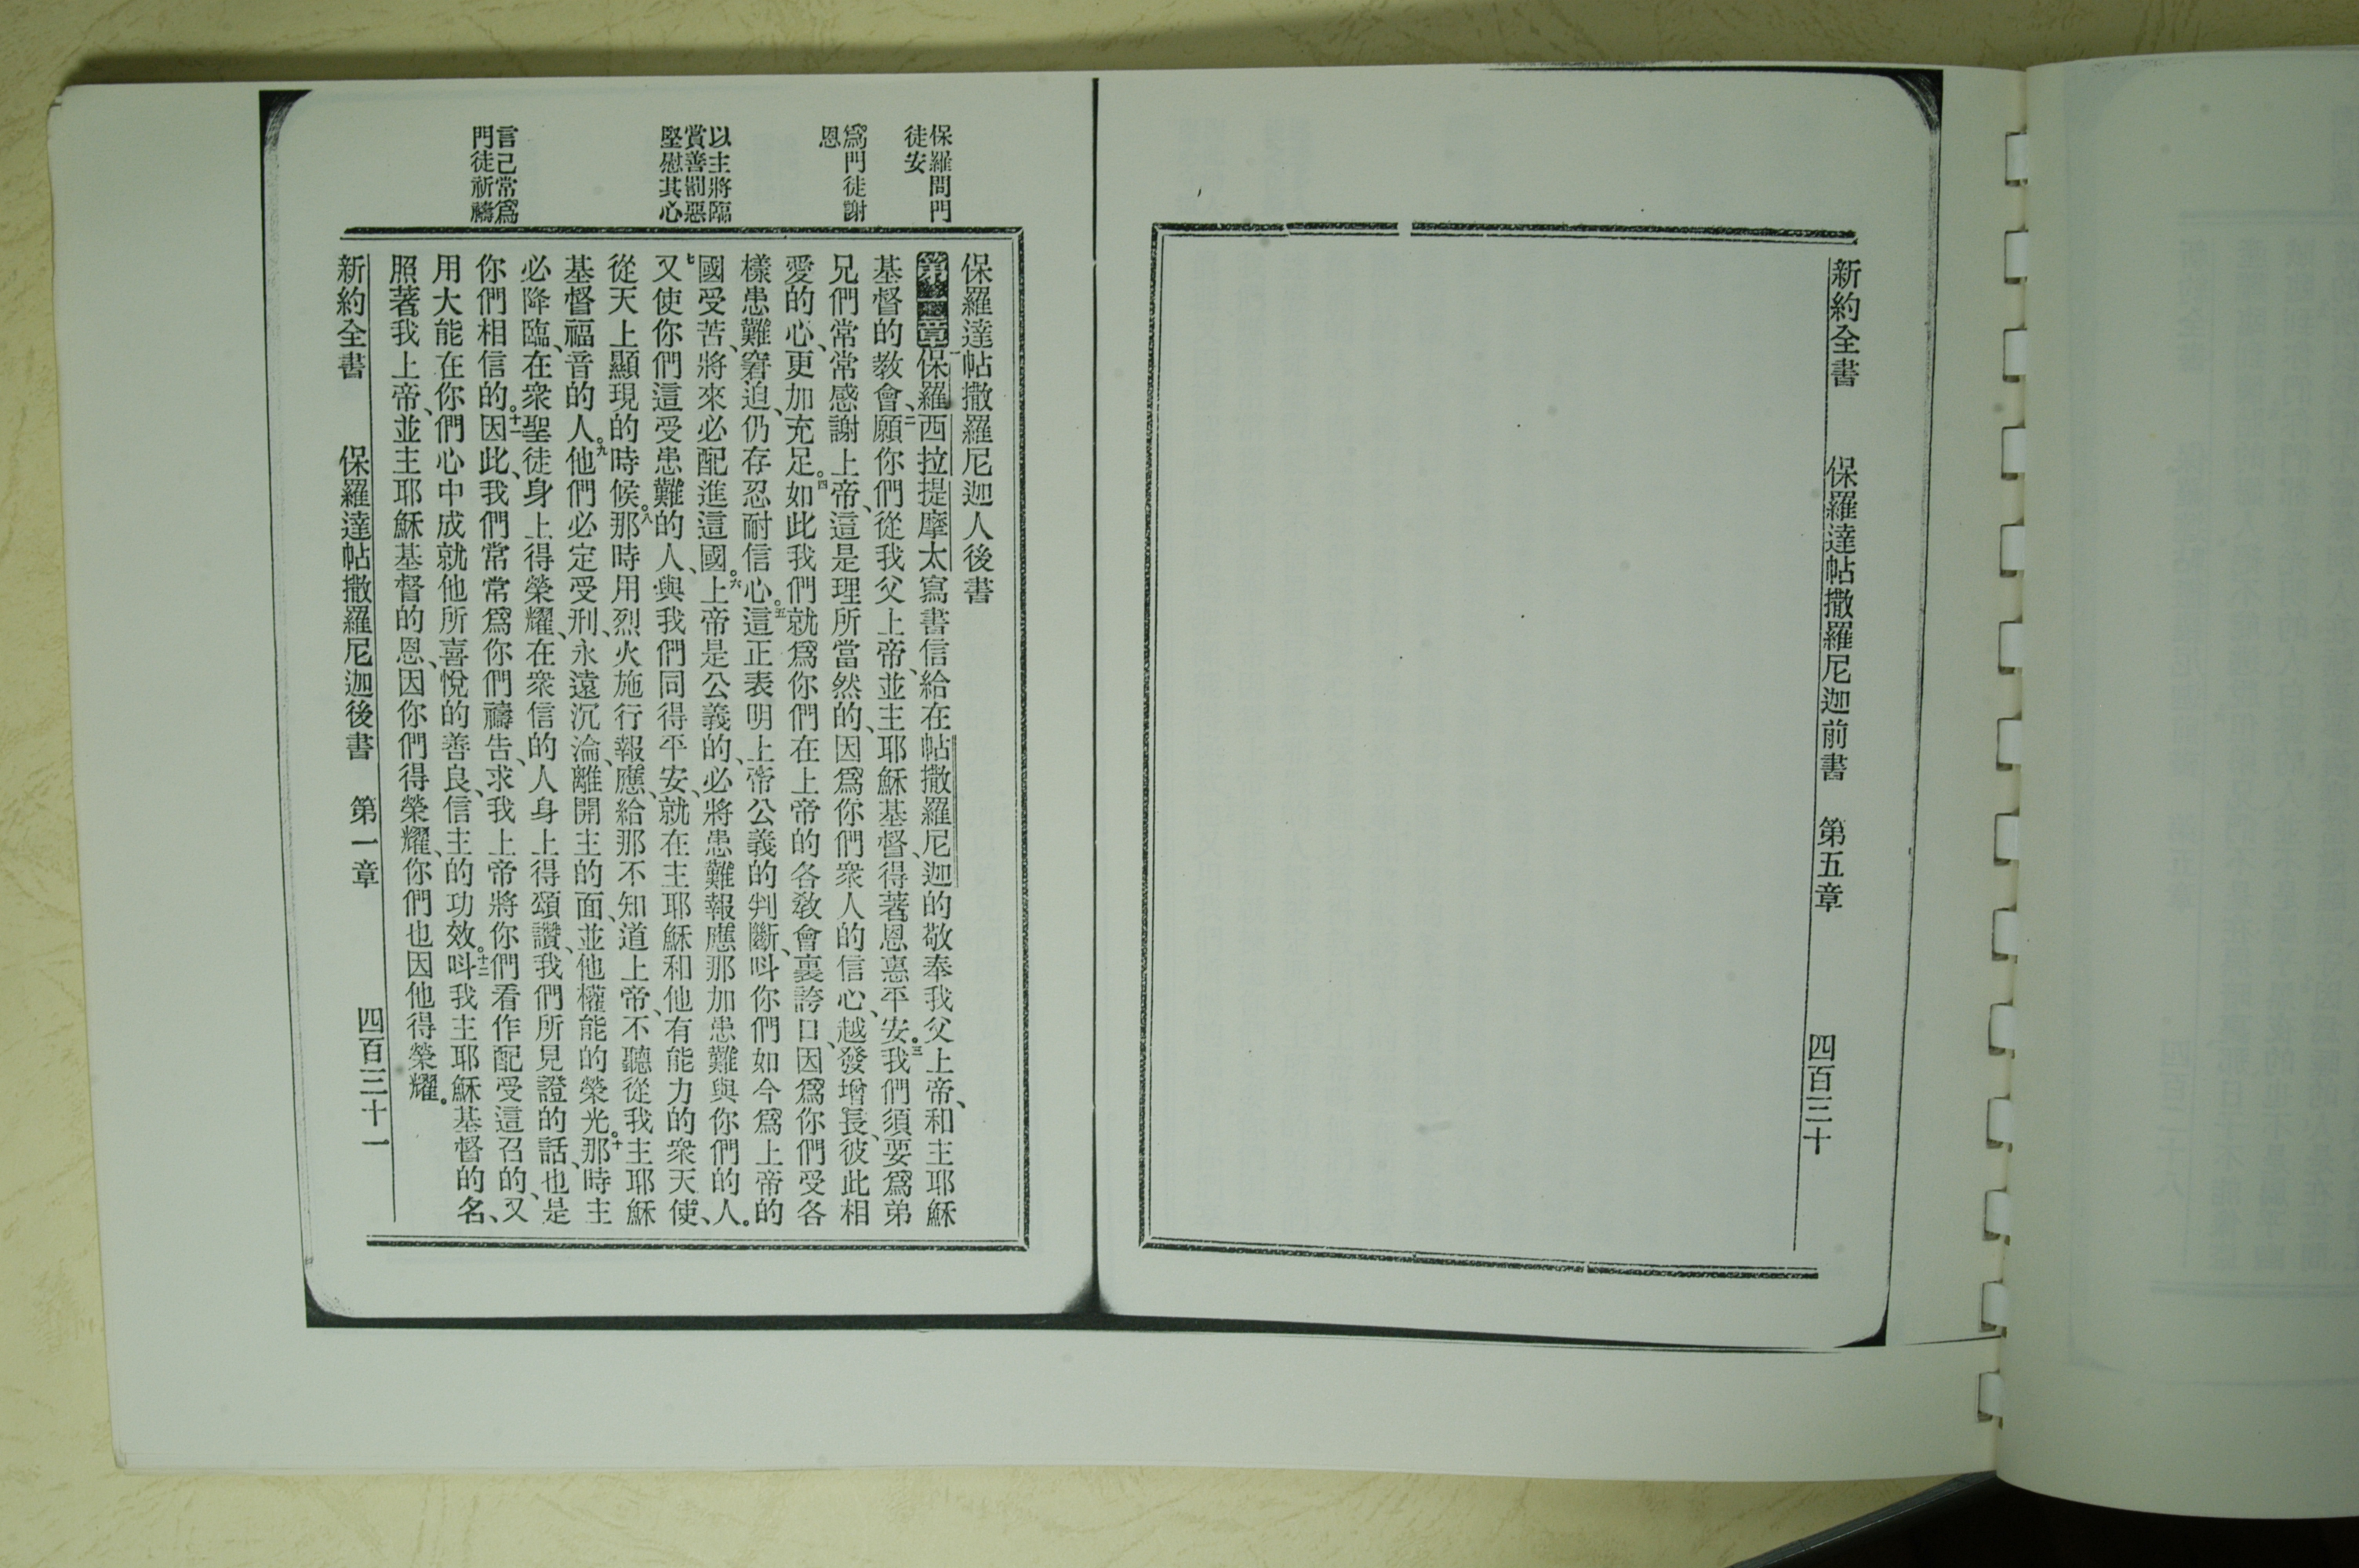 新約全書　保羅達帖撒羅尼迦前書　第五章　四百三十
保羅問門
徒安
爲門徒謝
恩
以主將臨
賞善罰惡
堅慰其心
言己常爲
門徒祈禱
保羅達帖撒羅尼迦人後書
第一章 一保羅西拉提摩太寫書信給在帖撒羅尼迦的敬奉我父上帝、和主耶穌
基督的教會、二願你們從我父上帝、並主耶穌基督、得著恩惠平安。三我們須要爲弟
兄們常常感謝上帝、這是理所當然的、因爲你們衆人的信心、越發增長、彼此相
愛的心、更加充足。四如此我們就爲你們在上帝的各敎會裏誇口、因爲你們受各
樣患難窘迫、仍存忍耐信心。五這正表明上帝公義的判斷、呌你們如今爲上帝的
國受苦、將來必配進這國。六上帝是公義的、必將患難報應那加患難與你們的人。
七又使你們這受患難的人、與我們同得平安、就在主耶穌和他有能力的衆天使、
從天上顯現的時候。八那時用烈火施行報應、給那不知道上帝、不聽從我主耶穌
基督福音的人。九他們必定受刑、永遠沉淪、離開主的面、並他權能的榮光。十那時主
必降臨、在衆聖徒身上得榮耀、在衆信的人身上得頌讚、我們所見證的話、也是
你們相信的。十一因此、我們常常爲你們禱告、求我上帝將你們看作配受這召的、又
用大能在你們心中成就他所喜悅的善良、信主的功效。十二呌我主耶穌基督的名、
照著我上帝、並主耶穌基督的恩、因你們得榮耀、你們也因他得榮耀。
新約全書　保羅達帖撒羅尼迦後書　第一章　四百三十一